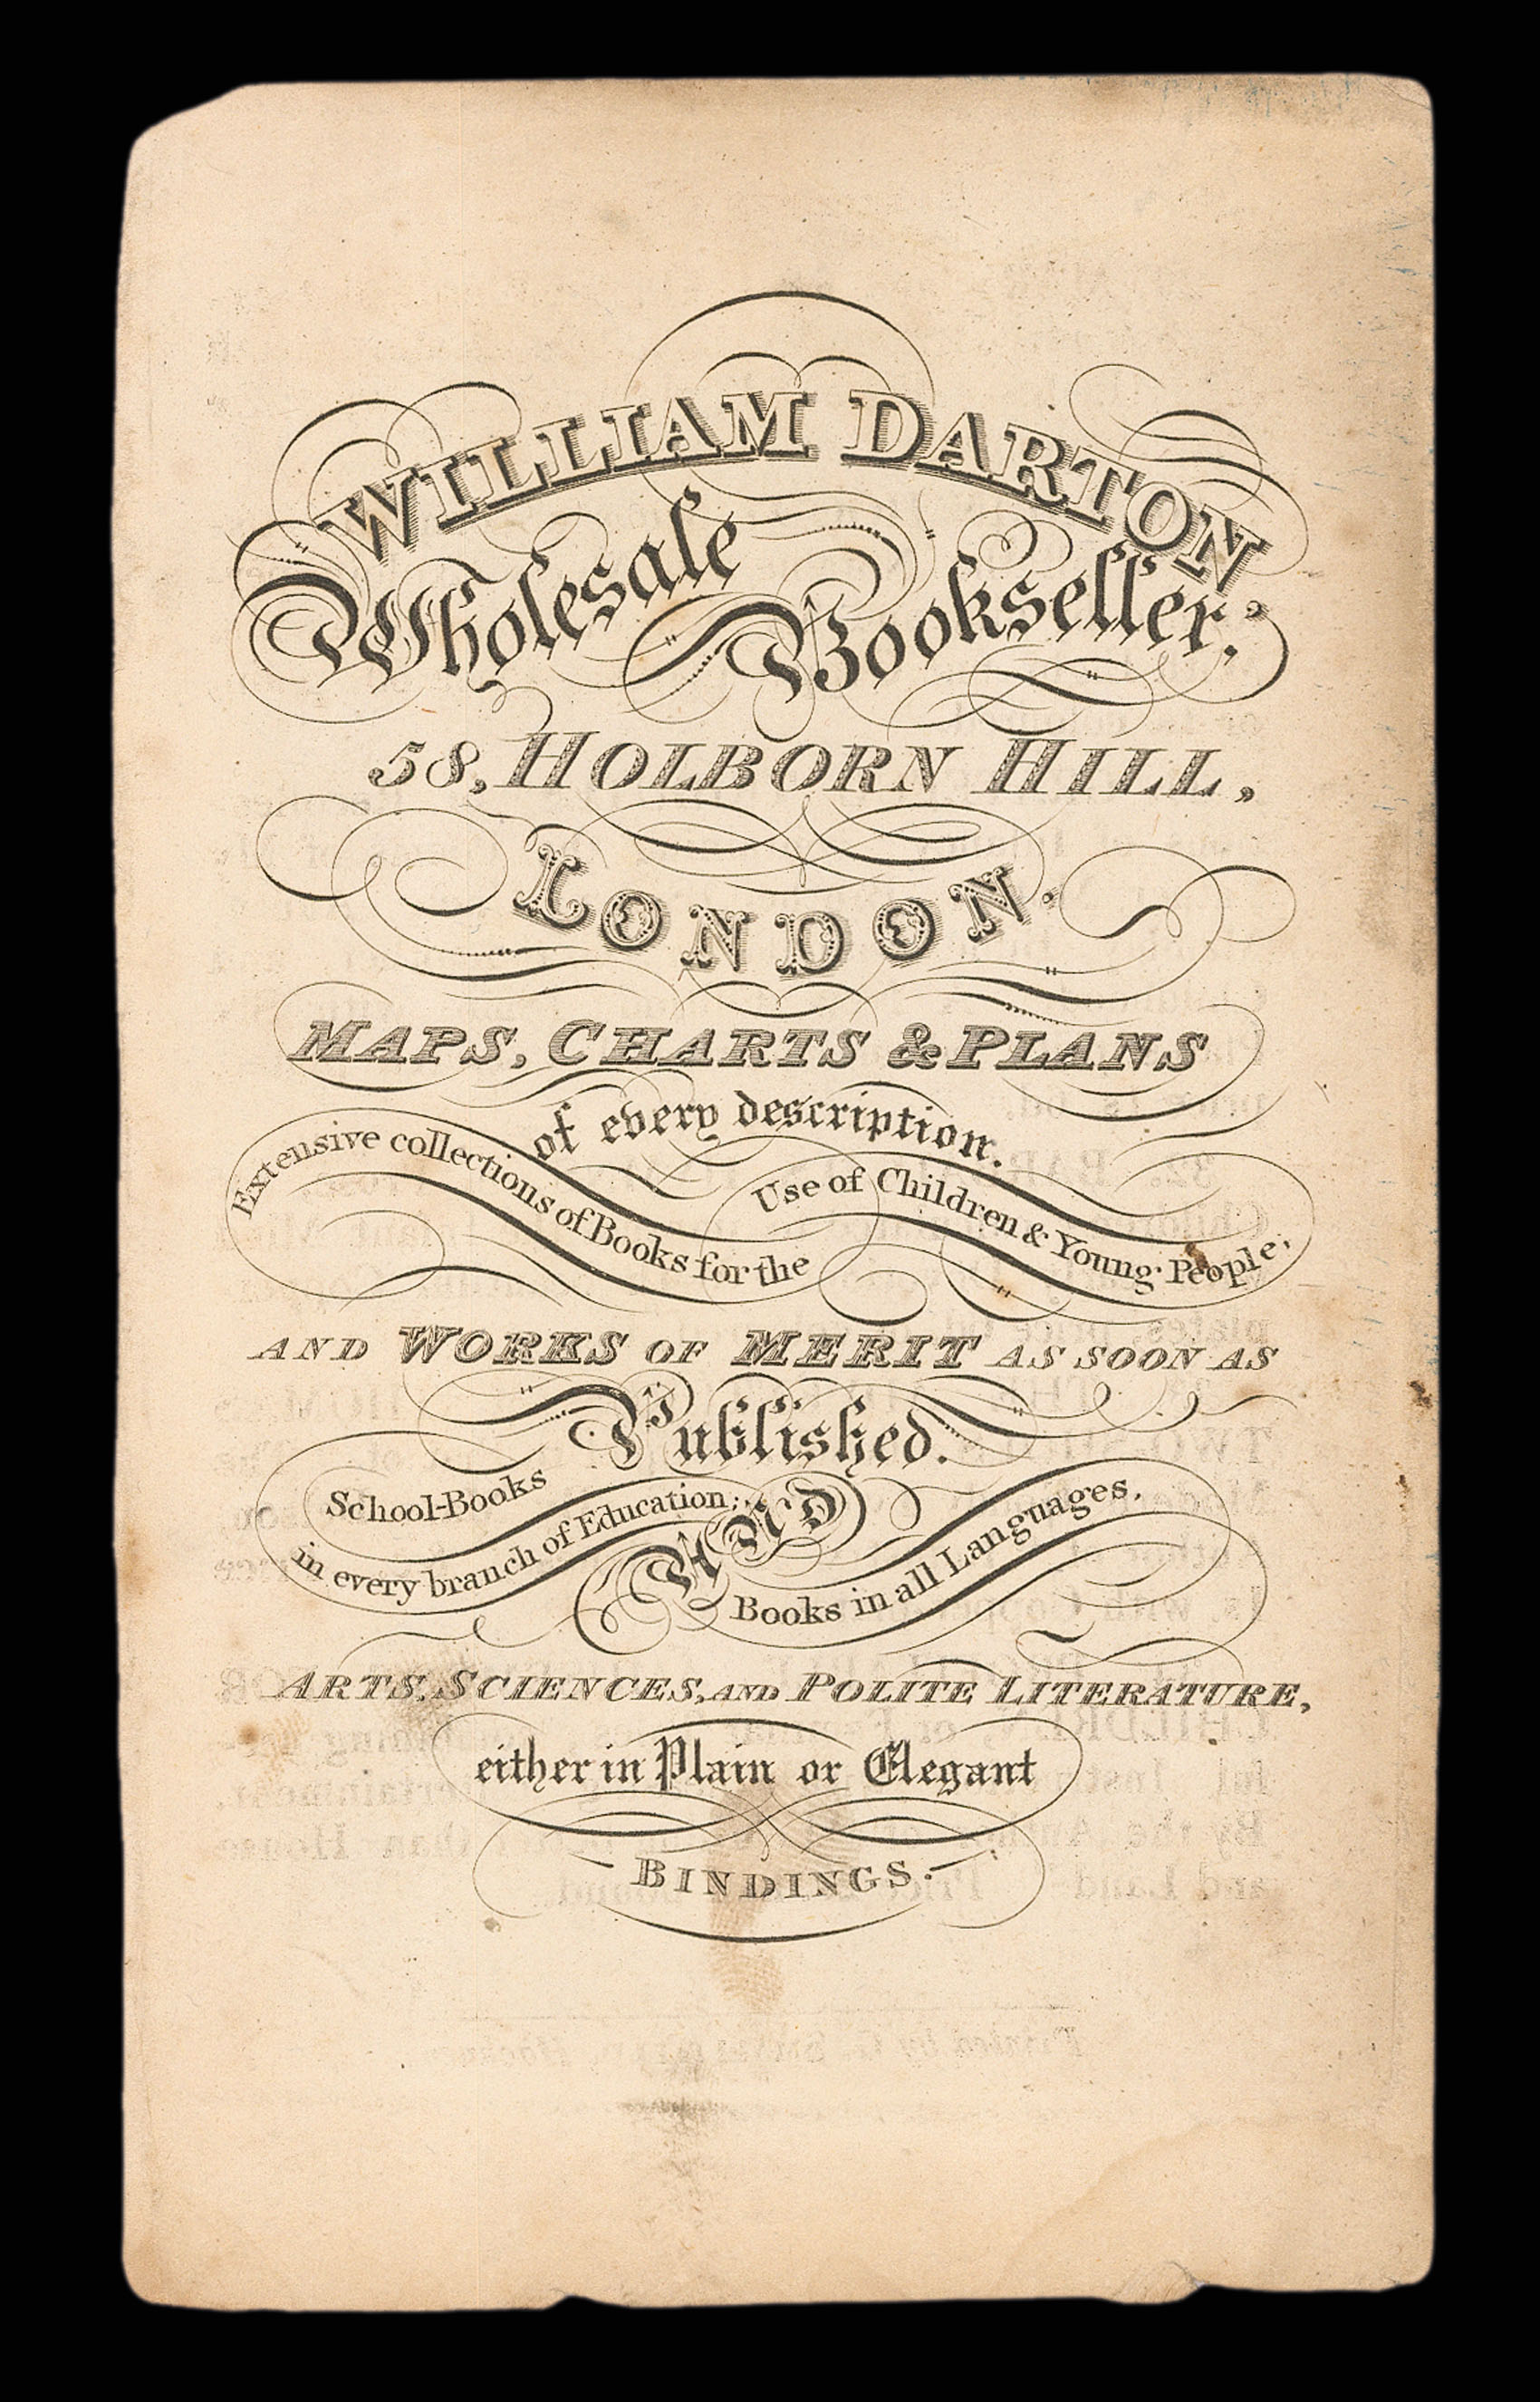 WILLIAM DARTON
Wholesale Bookseller;
58, HOLBORN HILL,
LONDON.
MAPS, CHARTS & PLANS
of every description.
Extensive collections of Books for the
Use of Children & Young People;
AND WORKS OF MERIT AS SOON AS
Published.
School-Books
in every branch of Education;
AND
Books in all Languages,
ARTS, SCIENCES, AND POLITE LITERATURE,
either in Plain or Elegant
BINDINGS.